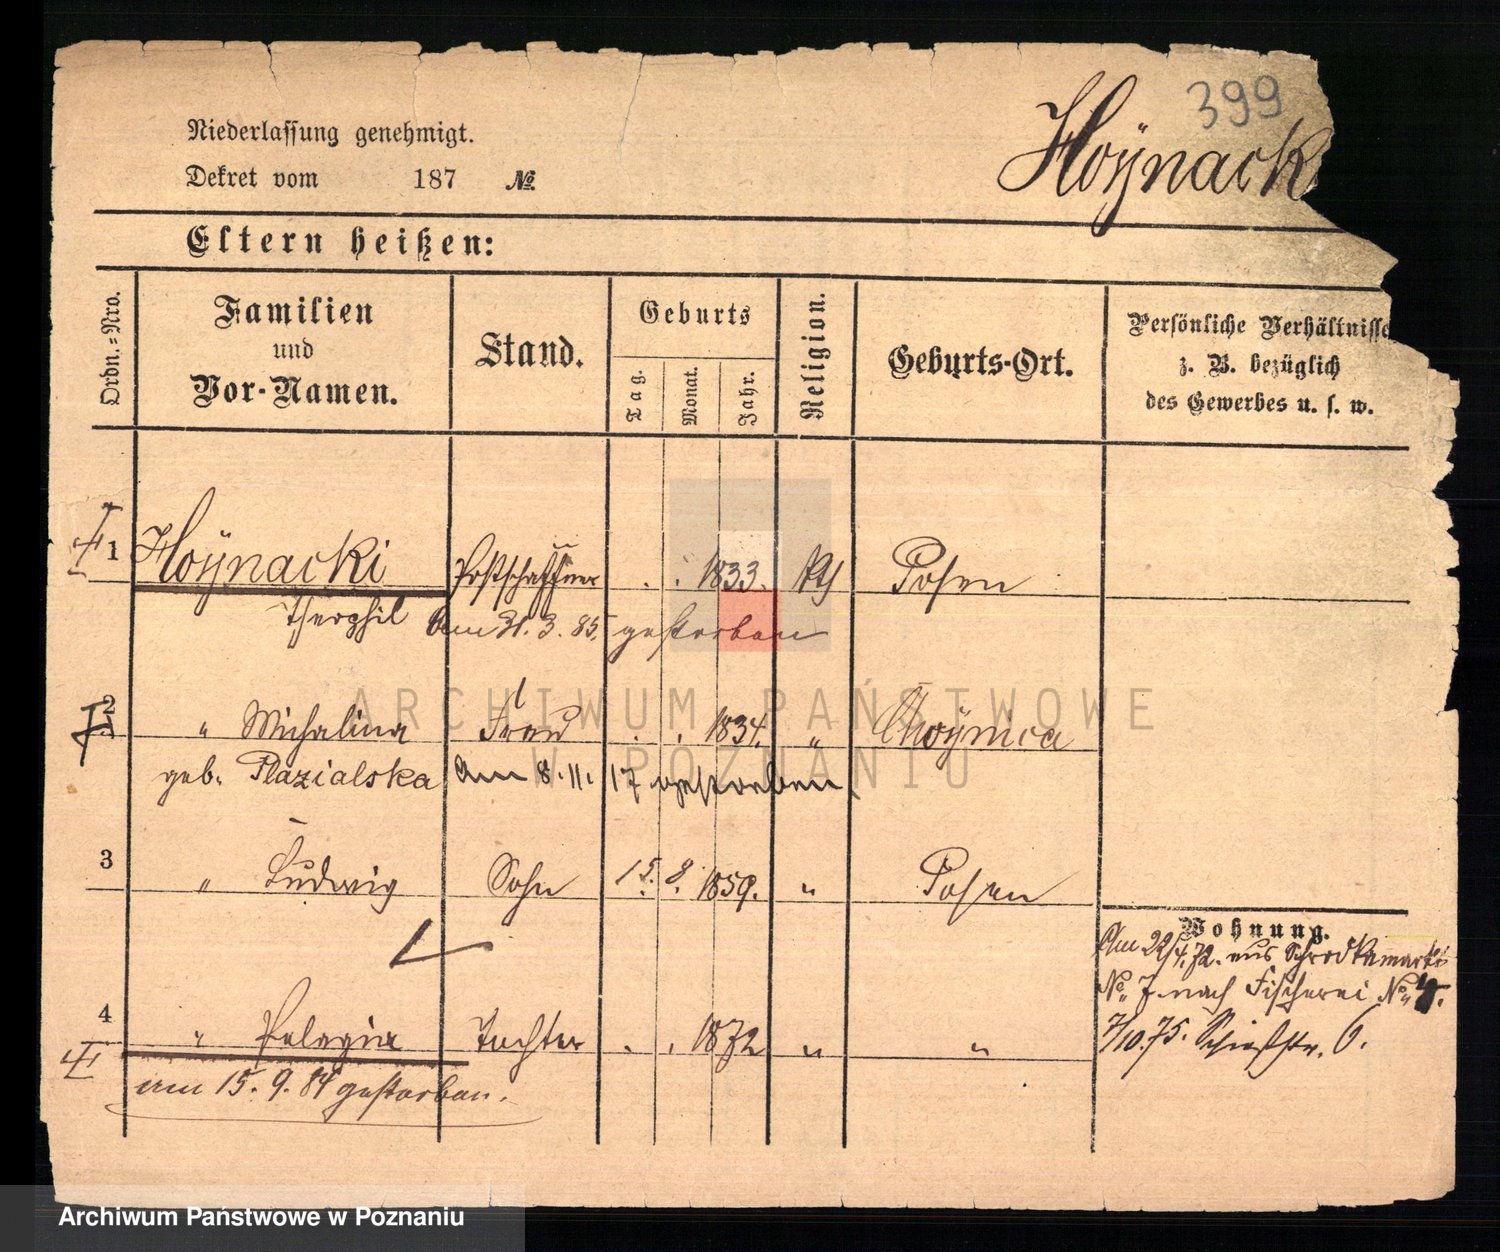 399
Hoÿnack
Niederlassung genehmigt.
Dekret vom 187 №
Eltern heißen:
Ordn.=Nro.
Familien
und
Vor-Namen.
Stand.
Geburts
Tag.
Monat.
Jahr.
Religion.
Geburts-Ort.
Persönliche Verhältnisse
z. B. bezüglich
des Gewerbes u. s. w.
1 Hoÿnacki Postschaffner . . 1833. Posen
Theophil Am 31. 3. 85. gestorben
2 " Michalina Frau . . 1834. "
geb. am 8. 11. 17 gestorben
3 " Ludwig Sohn 15. 8. 1859. " Posen
Wohnung.
Am 22/4. 72. aus Schrodkamarkt
No. 7 nach Fischerei No.
4 " Pelagia Tochter . . 1872 " "
7/10. 75. Schießstr. 6.
am 15. 9. 84 gestorben.
ARCHIWUM PAŃSTWOWE
W POZNANIU
Archiwum Państwowe w Poznaniu